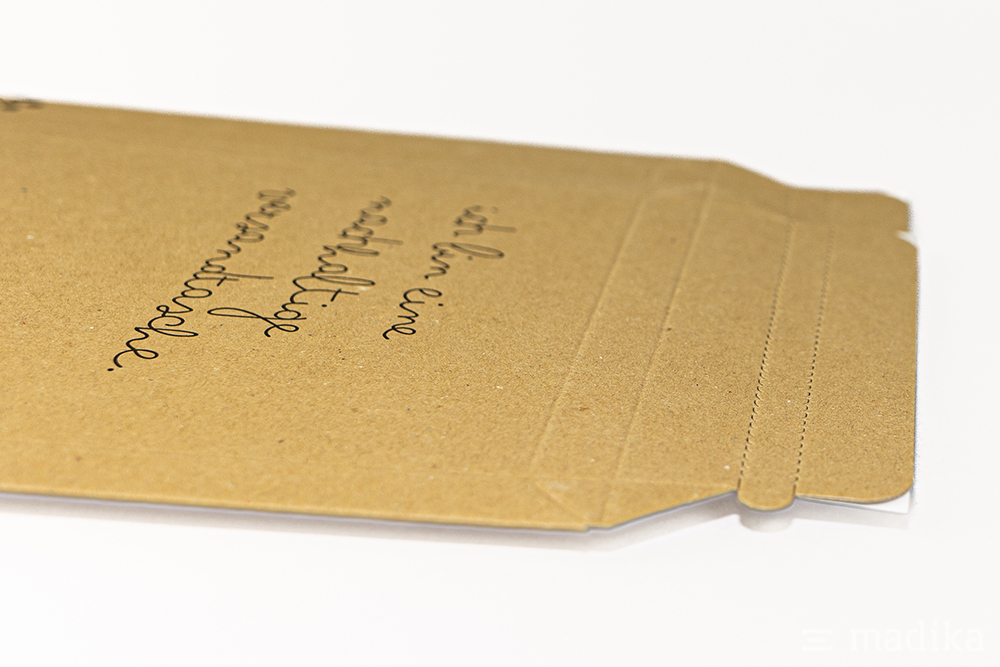 ich bin eine
nachhaltige
versandtasche.
madika